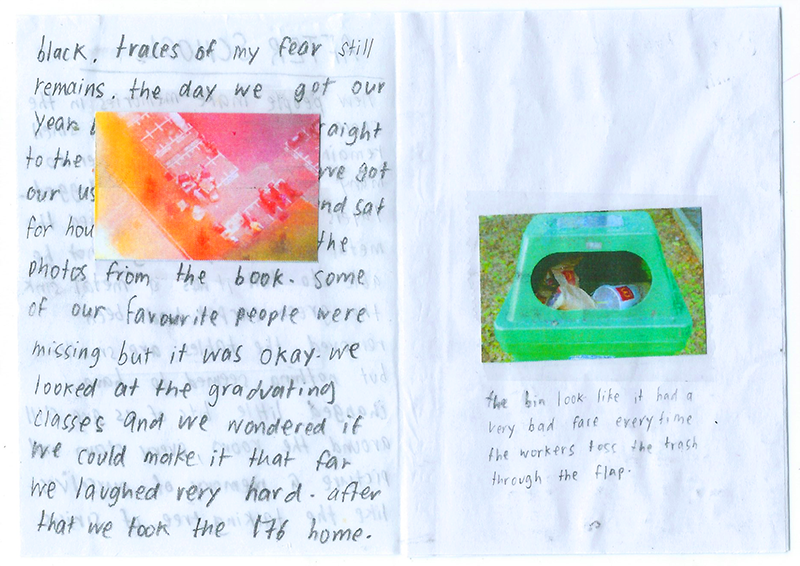 black. traces of my fear still
remains. the day we got our
year raight
to the ve got
our us nd sat
for hou the
photos from the book. some
of our favourite people were
missing but it was okay. we
looked at the graduating
classes and we wondered if
we could make it that far
we laughed very hard. after
that we took the 176 home.
the bin look like it had a
very bad face everytime
the workers toss the trash
through the flap.